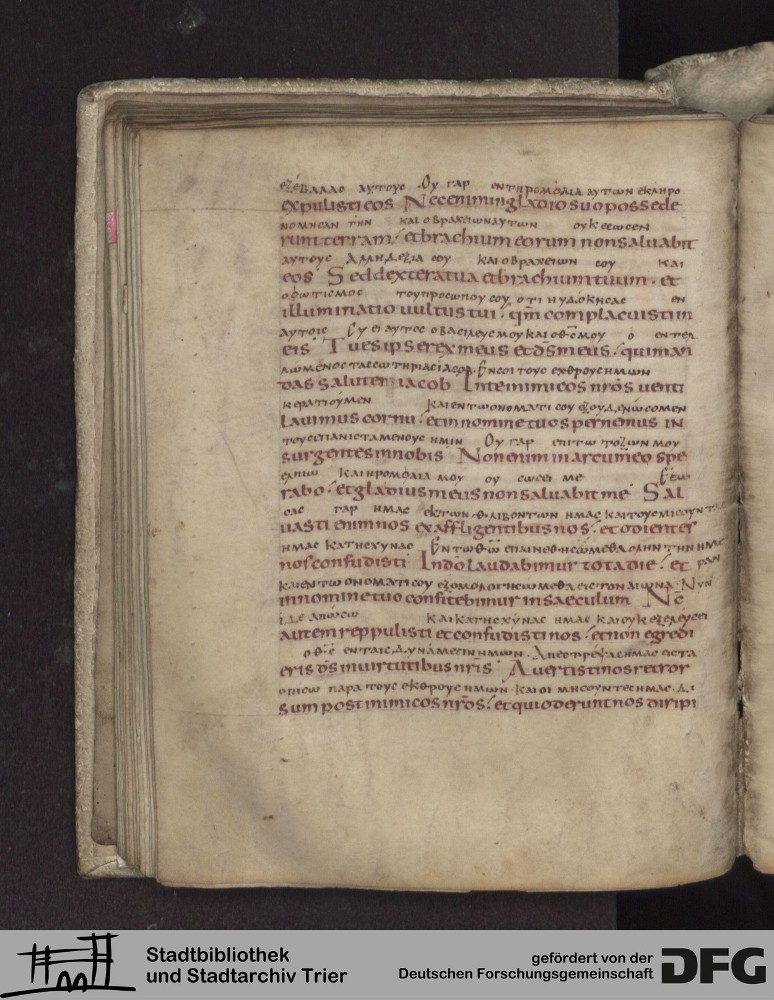 εξέβαλλας αυτους Ου γαρ εντηρομφαια αυτων εκληρο
expulisti eos Nec enim in gladio suo possede
νομησαν την και οβραχειων αυτων ουκ εσωσεν
runt terram· et brachium eorum non salvabit
αυτους Αλλη δεξια σου και οβραχειων σου και
eos Sed dextera tua et brachium tuum· et
οφωτισμος του προσωπου σου οτι ηυδοκησας εν
illuminatio vultus tui· qm complacuisti in
αυτοις Συ ει αυτος οβασιλευς μου και οθς μου ο εντελ
eis Tu es ipse rex meus et ds meus· qui man
λωμενος τας σωτηριας ιακωβ Εν σοι τους εχθρους ημων
das salutem iacob In te inimicos nros venti
κερατιουμεν και εν τω ονοματι σου εξουδενωσομεν
lavimus cornu· et in nomine tuo spernemus in
τους επανισταμενους ημιν Ου γαρ επι τω τοξων μου
surgentes in nobis Non enim in arcu meo spe
ελπιω και ηρομφαια μου ου σωσει με
rabo· et gladius meus non salvabit me Sal
γαρ ημας εκ των θλιβοντων ημας και τους μισουντας
vasti enim nos ex affligentibus nos· et odientes
ημας κατησχυνας Εν τω θω επαινεθησωμεθα ολην την ημε
nos confudisti In do laudabimur tota die· et ραν
και εν τω ονοματι σου εξομολογησωμεθα εις τον αιωνα Νυν
in nomine tuo confitebimur in saeculum Nc
και κατησχυνας ημας και ουκ εξελευσει
autem reppulisti et confudisti nos· et non egredi
ο θς εν ταις δυναμεσιν ημων Απεστρεψας ημας εις τα
eris ds in virtutibus nris Avertisti nos retror
οπισω παρα τους εκθρους ημων και οι μησουντες ημας δι
sum post inimicos nros· et qui oderunt nos diripi
Stadtbibliothek
und Stadtarchiv Trier
gefördert von der
Deutschen Forschungsgemeinschaft
DFG